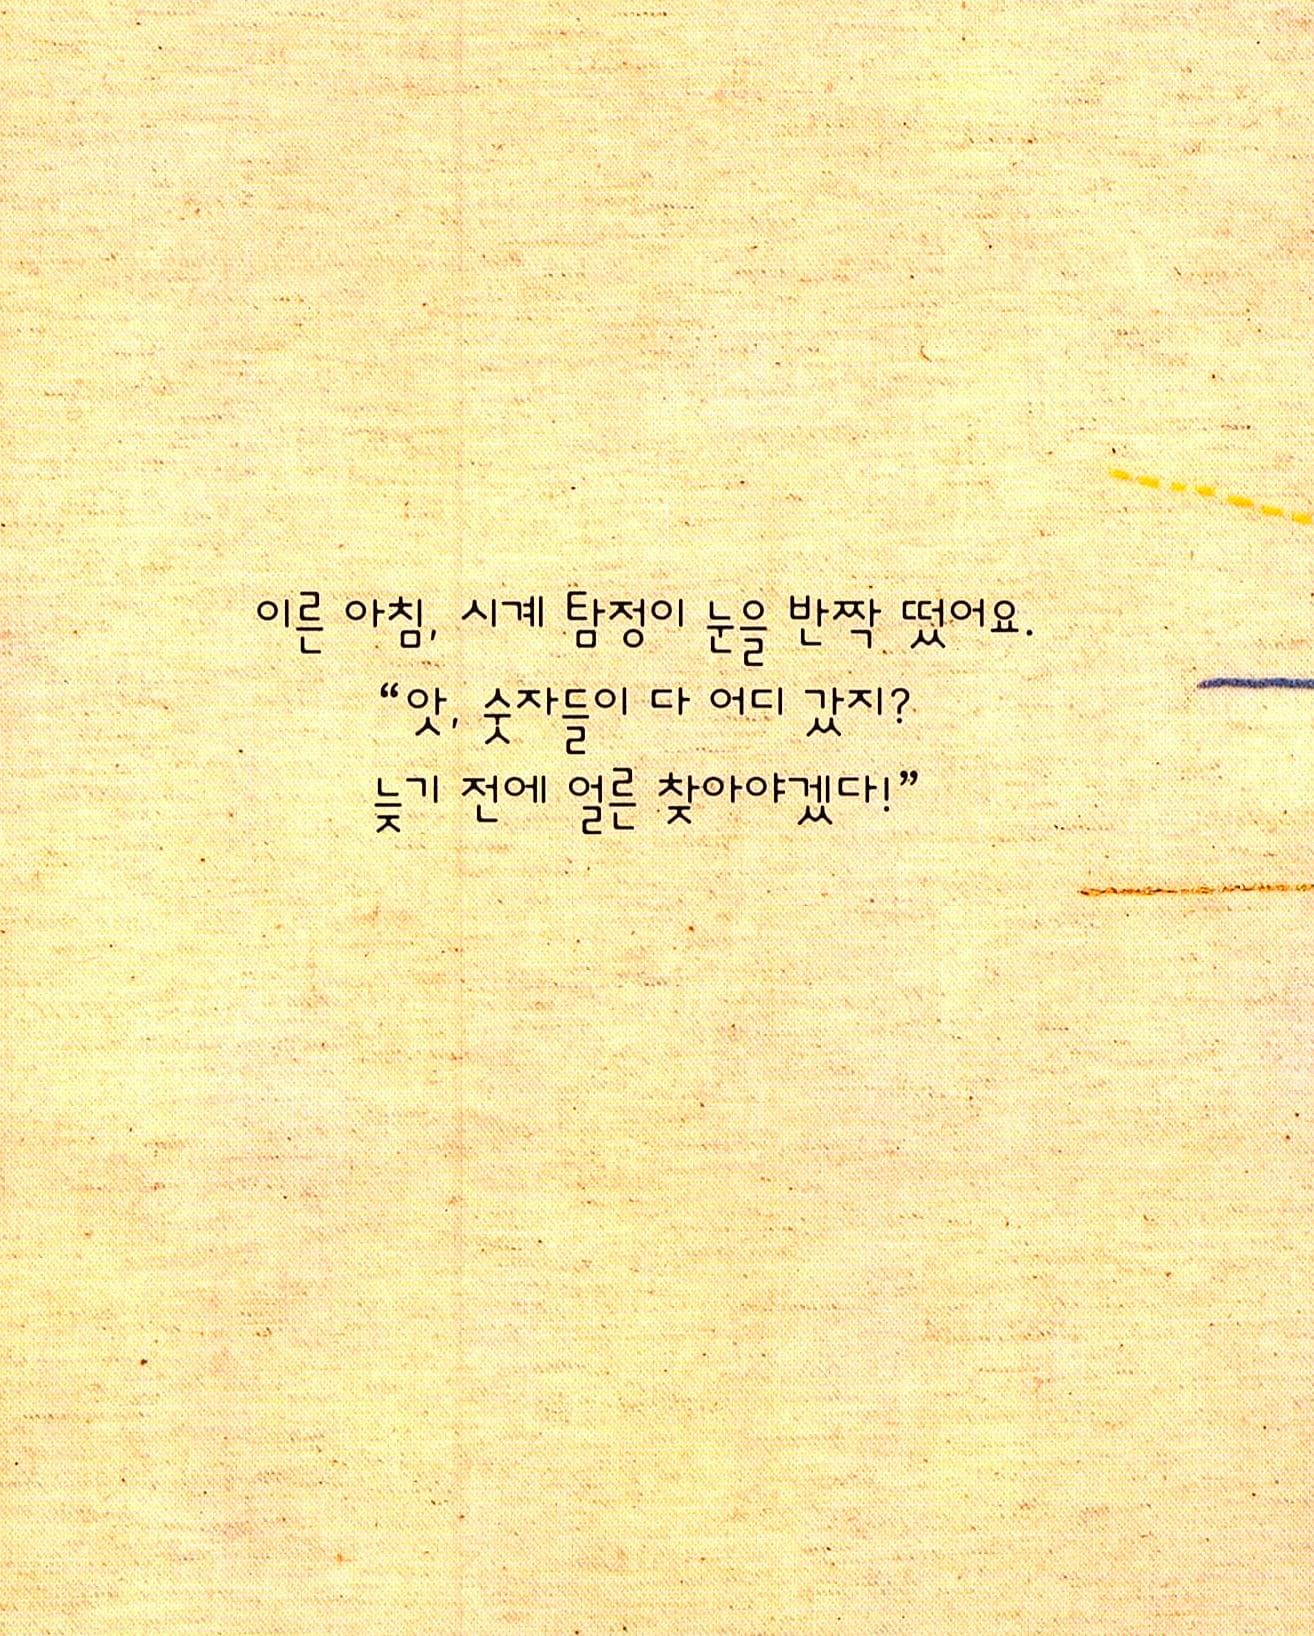 이른 아침, 시계 탐정이 눈을 반짝 떴어요.
“앗, 숫자들이 다 어디 갔지?
늦기 전에 얼른 찾아야겠다!”